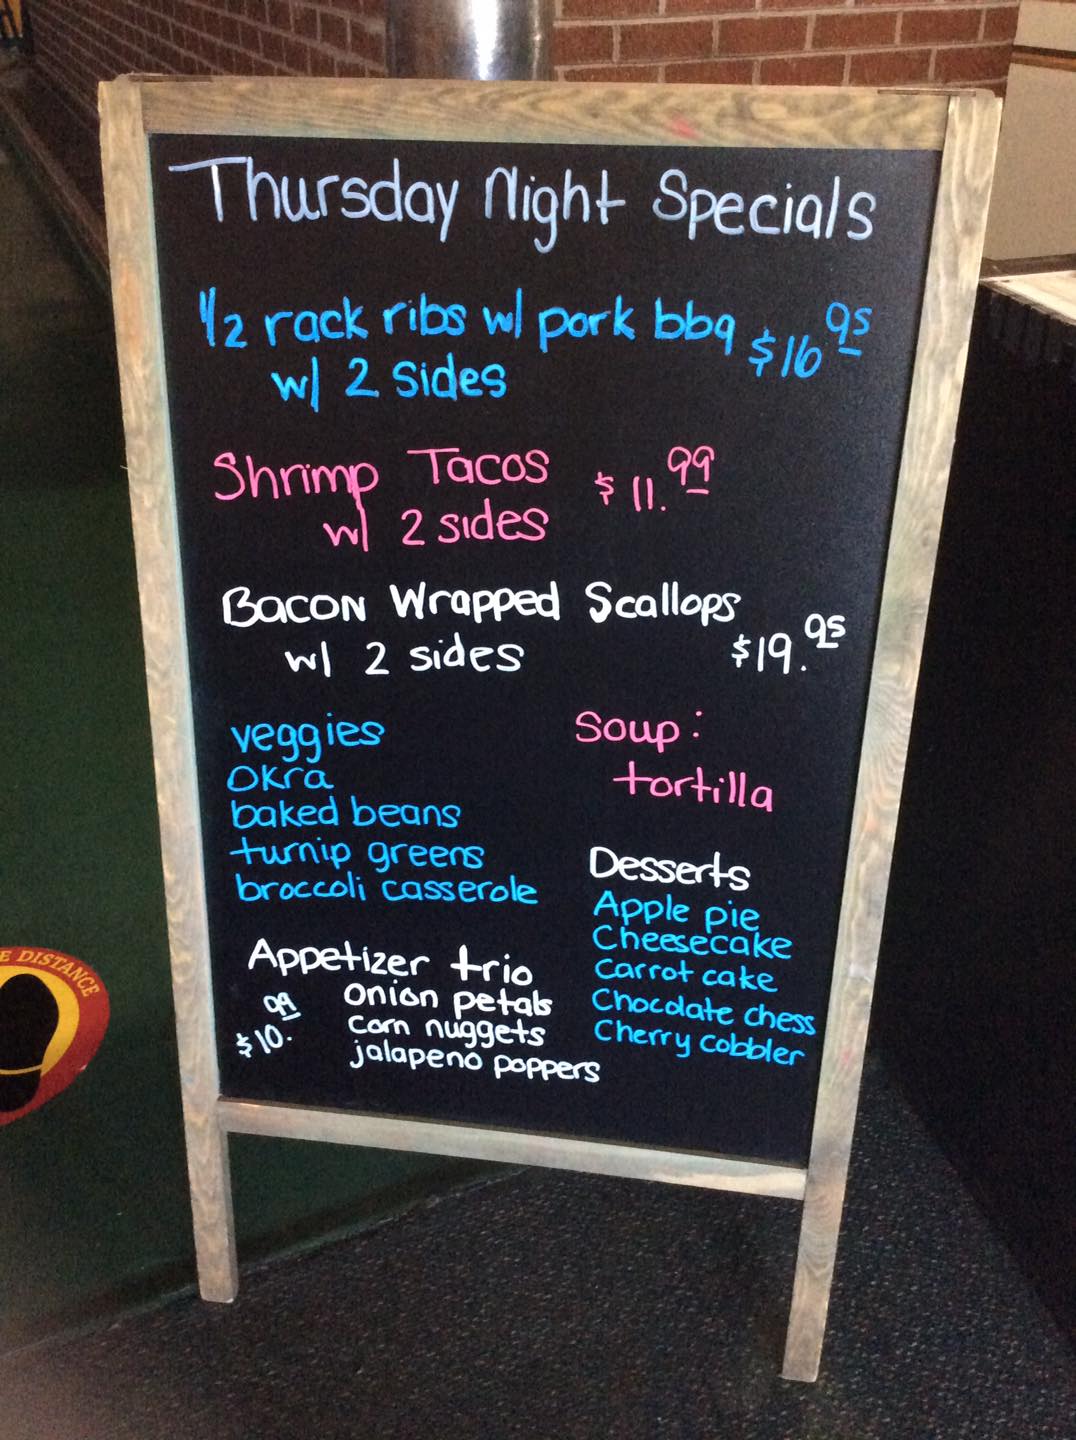 Thursday Night Specials
1/2 rack ribs w/ pork bbq $16 95
w/ 2 sides
Shrimp Tacos $11.99
w/ 2 sides
Bacon Wrapped Scallops
w/ 2 sides $19.95
veggies
okra
baked beans
turnip greens
broccoli casserole
Soup:
tortilla
Desserts
Apple pie
Cheesecake
Carrot cake
Chocolate chess
Cherry cobbler
Appetizer trio
$10.99
onion petals
corn nuggets
jalapeno poppers
E DISTANCE